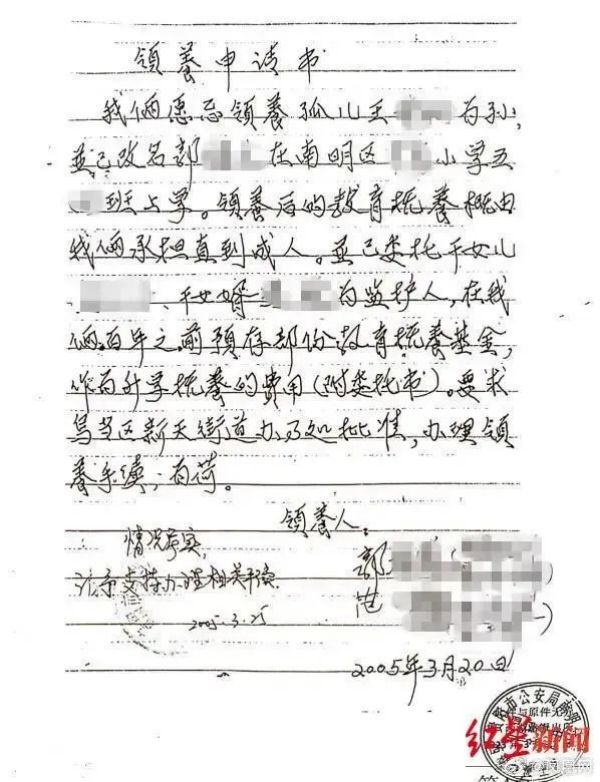 领养申请书
我俩愿意领养孤儿王 为孙,
並已改名郭 在南明区 小学五
班上学。领养后的教育抚养概由
我俩承担直到成人。並已委托干女儿
、干女婿 为监护人,在我
俩百年之前预存部份教育抚养基金,
作为升学抚养的费用(附委托书)。要求
乌当区新天街道办予以批准,办理领
养手续;为荷。
领养人:
情况属实,
请予支持办理相关手续
2005.3.25
郭
范
2005年3月20日
市公安局南明
件与原件无
红星新闻